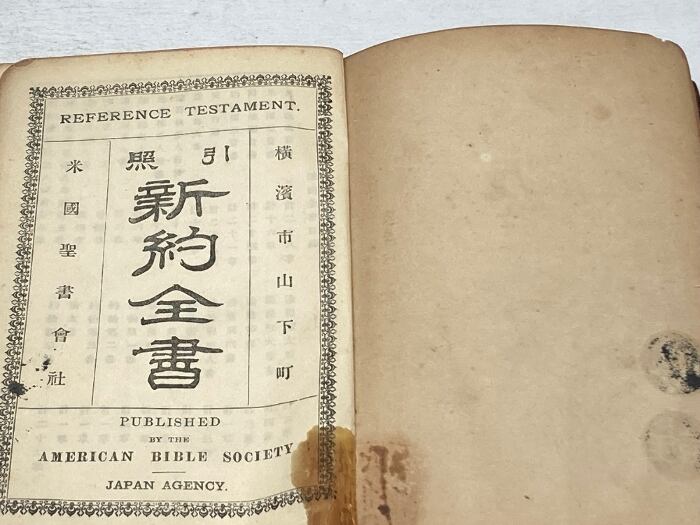 REFERENCE TESTAMENT.
橫濱市山下町
引照
新約全書
米國聖書會社
PUBLISHED
BY THE
AMERICAN BIBLE SOCIETY
JAPAN AGENCY.